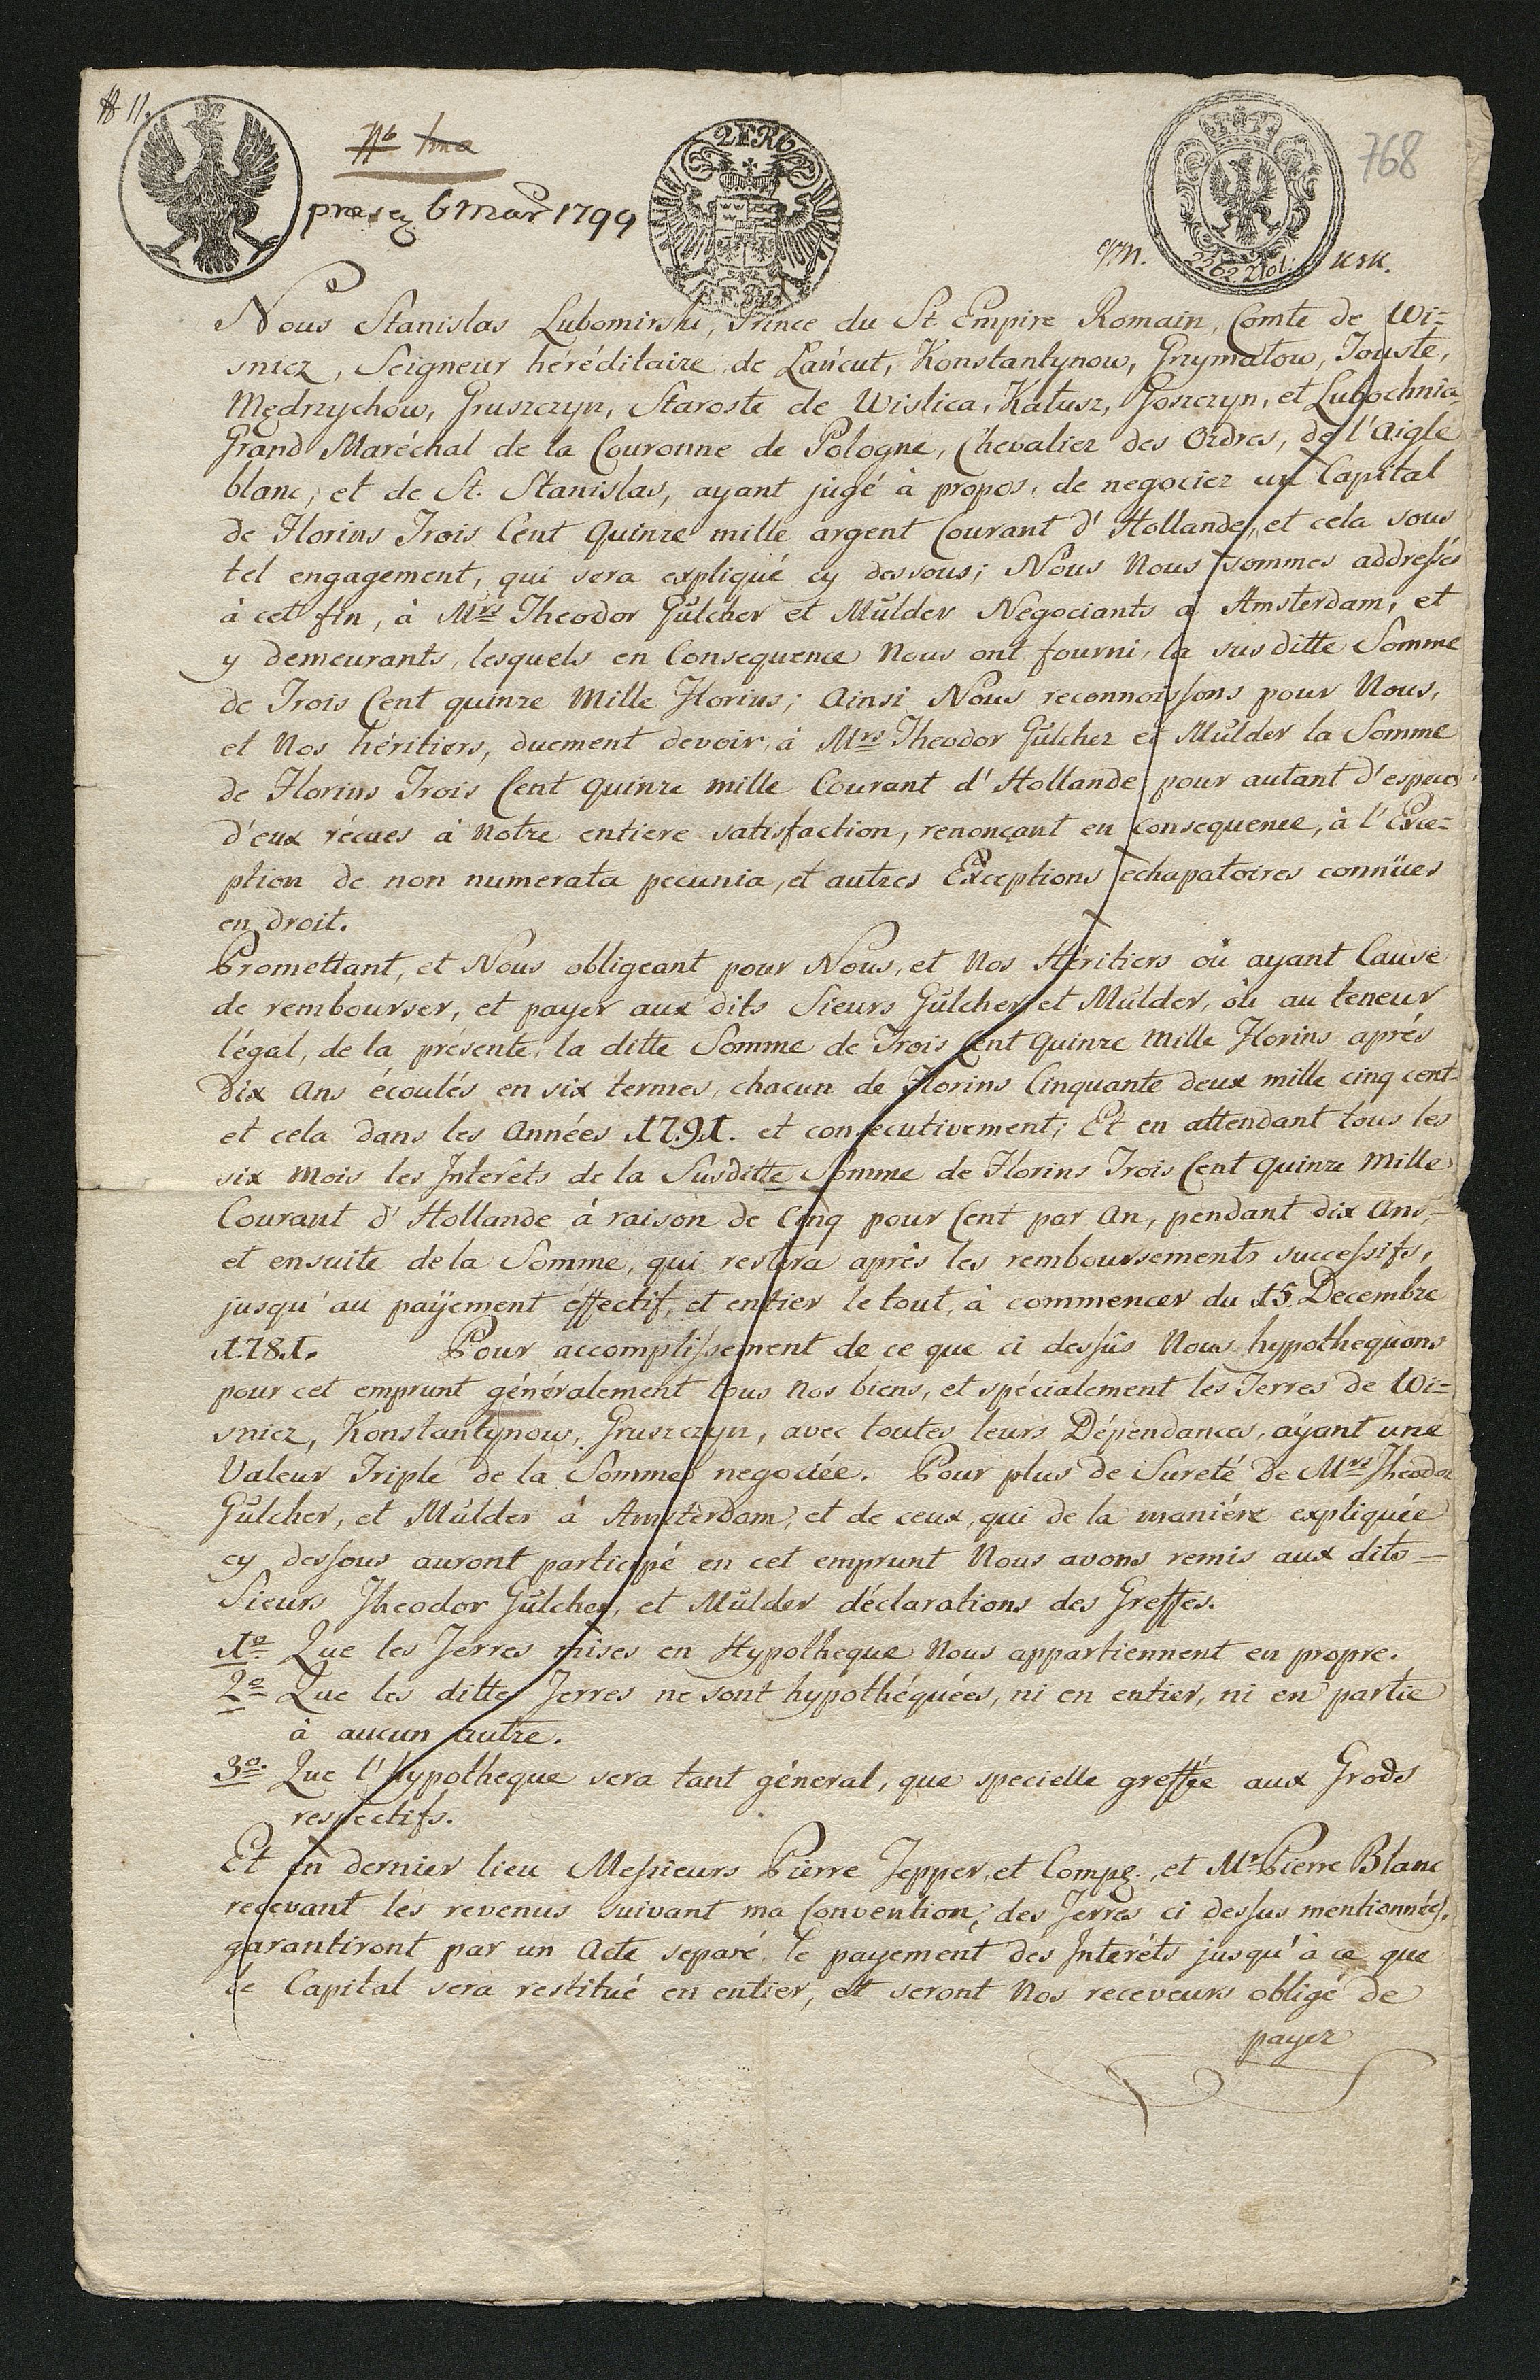 # 11.
præsen 6 Mar 1799
2FR6
768
2262. Zlot.
Nous Stanislas Lubomirski, Prince du St. Empire Romain, Comte de Wi=
snicz, Seigneur héréditaire de Łańcut, Konstantynow, Grzymałow, Touste,
Mędrzychow, Gruszczyn, Staroste de Wislica, Kałusz, Goszczyn, et Lubochnia
Grand Maréchal de la Couronne de Pologne, Chevalier des Ordres, de l'Aigle
blanc, et de St. Stanislas, ayant jugé à propos, de negocier un Capital
de Florins Trois Cent Quinze mille argent Courant d'Hollande, et cela sous
tel engagement, qui sera expliqué cy dessous; Nous Nous sommes addressés
à cet fin, à Mrs Theodor Gülcher et Mülder Négociants à Amsterdam, et
y demeurants, lesquels en Consequence Nous ont fourni, la sus ditte Somme
de Trois Cent quinze Mille Florins; Ainsi Nous reconnoissons pour Nous,
et Nos héritiers, duement devoir, à Mrs Theodor Gülcher et Mülder la Somme
de Florins Trois Cent Quinze mille Courant d'Hollande pour autant d'especes
d'eux récues à Notre entiere satisfaction, renonçant en Consequence, à l'Exce=
ption de non numerata pecunia, et autres Exceptions echapatoires connües
en droit.
Promettant, et Nous obligeant pour Nous, et Nos Héritiers où ayant Cause
de rembourser, et payer aux dits Sieurs Gülcher et Mülder, où au teneur
légal, de la présente, la ditte Somme de Trois Cent Quinze Mille Florins aprés
Dix Ans écoulés en six termes, chacun de Florins Cinquante deux mille cinq cent
et cela dans les Années 1791. et consecutivement; Et en attendant tous les
six mois les Interêts de la Susditte Somme de Florins Trois Cent Quinze Mille
Courant d'Hollande à raison de Cinq pour Cent par An, pendant dix Ans,
et ensuite de la Somme, qui restera après les remboursements successifs,
jusqu'au payement éffectif, et entier le tout, à commencer du 15. Decembre
1781. Pour accomplissement de ce que ci dessûs Nous hypothequons
pour cet emprunt généralement tous Nos biens, et spécialement les Terres de Wi=
snicz, Konstantynow, Gruszczyn, avec toutes leurs Dépendances, ayant une
Valeur Triple de la Somme negociée. Pour plus de Sureté de Mrs Theodor
Gülcher, et Mülder à Amsterdam, et de ceux, qui de la maniére expliquée
cy dessous auront participé en cet emprunt Nous avons remis aux dits =
Sieurs Theodor Gülcher, et Mülder déclarations des Greffes.
1o Que les Terres mises en Hypotheque Nous appartiennent en propre.
2o Que les dittes Terres ne sont hypothéquées, ni en entier, ni en partie
à aucun autre.
3o. Que l'hypotheque sera tant géneral, que specielle greffée aux Grods
respectifs.
Et en dernier lieu Messieurs Pierre Tepper, et Comp. et Mr. Pierre Blanc
recevant les revenus suivant ma Convention, des Terres ci dessus mentionnées,
garantiront par un Acte separé, le payement des Interéts jusqu'à ce que
le Capital sera restitué en entier, et seront Nos receveurs obligé de
payer